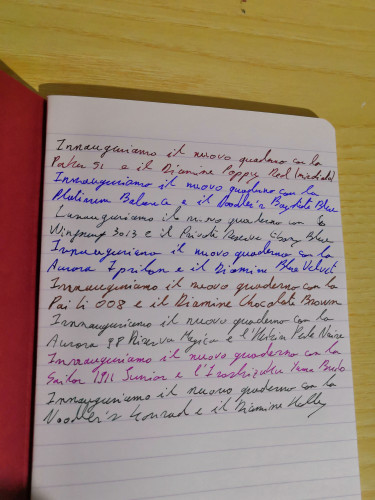 Innauguriamo il nuovo quaderno con la
Parker 51 e il Diamine Poppy Red (miscelato)
Innauguriamo il nuovo quaderno con la
Platinum Balance e il Noodler's Baystate Blue
Innauguriamo il nuovo quaderno con la
Wingsung 3013 e il Private Reserve Ebony Blue
Innauguriamo il nuovo quaderno con la
Aurora Ipsilon e il Diamine Blue Velvet
Innauguriamo il nuovo quaderno con la
Pai Li 008 e il Diamine Chocolate Brown
Innauguriamo il nuovo quaderno con la
Aurora 98 Riserva Magica e l'
Innauguriamo il nuovo quaderno con la
Sailor 1911 Junior e l'Iroshizuku Yama Budo
Innauguriamo il nuovo quaderno con la
Noodler's Konrad e il Diamine